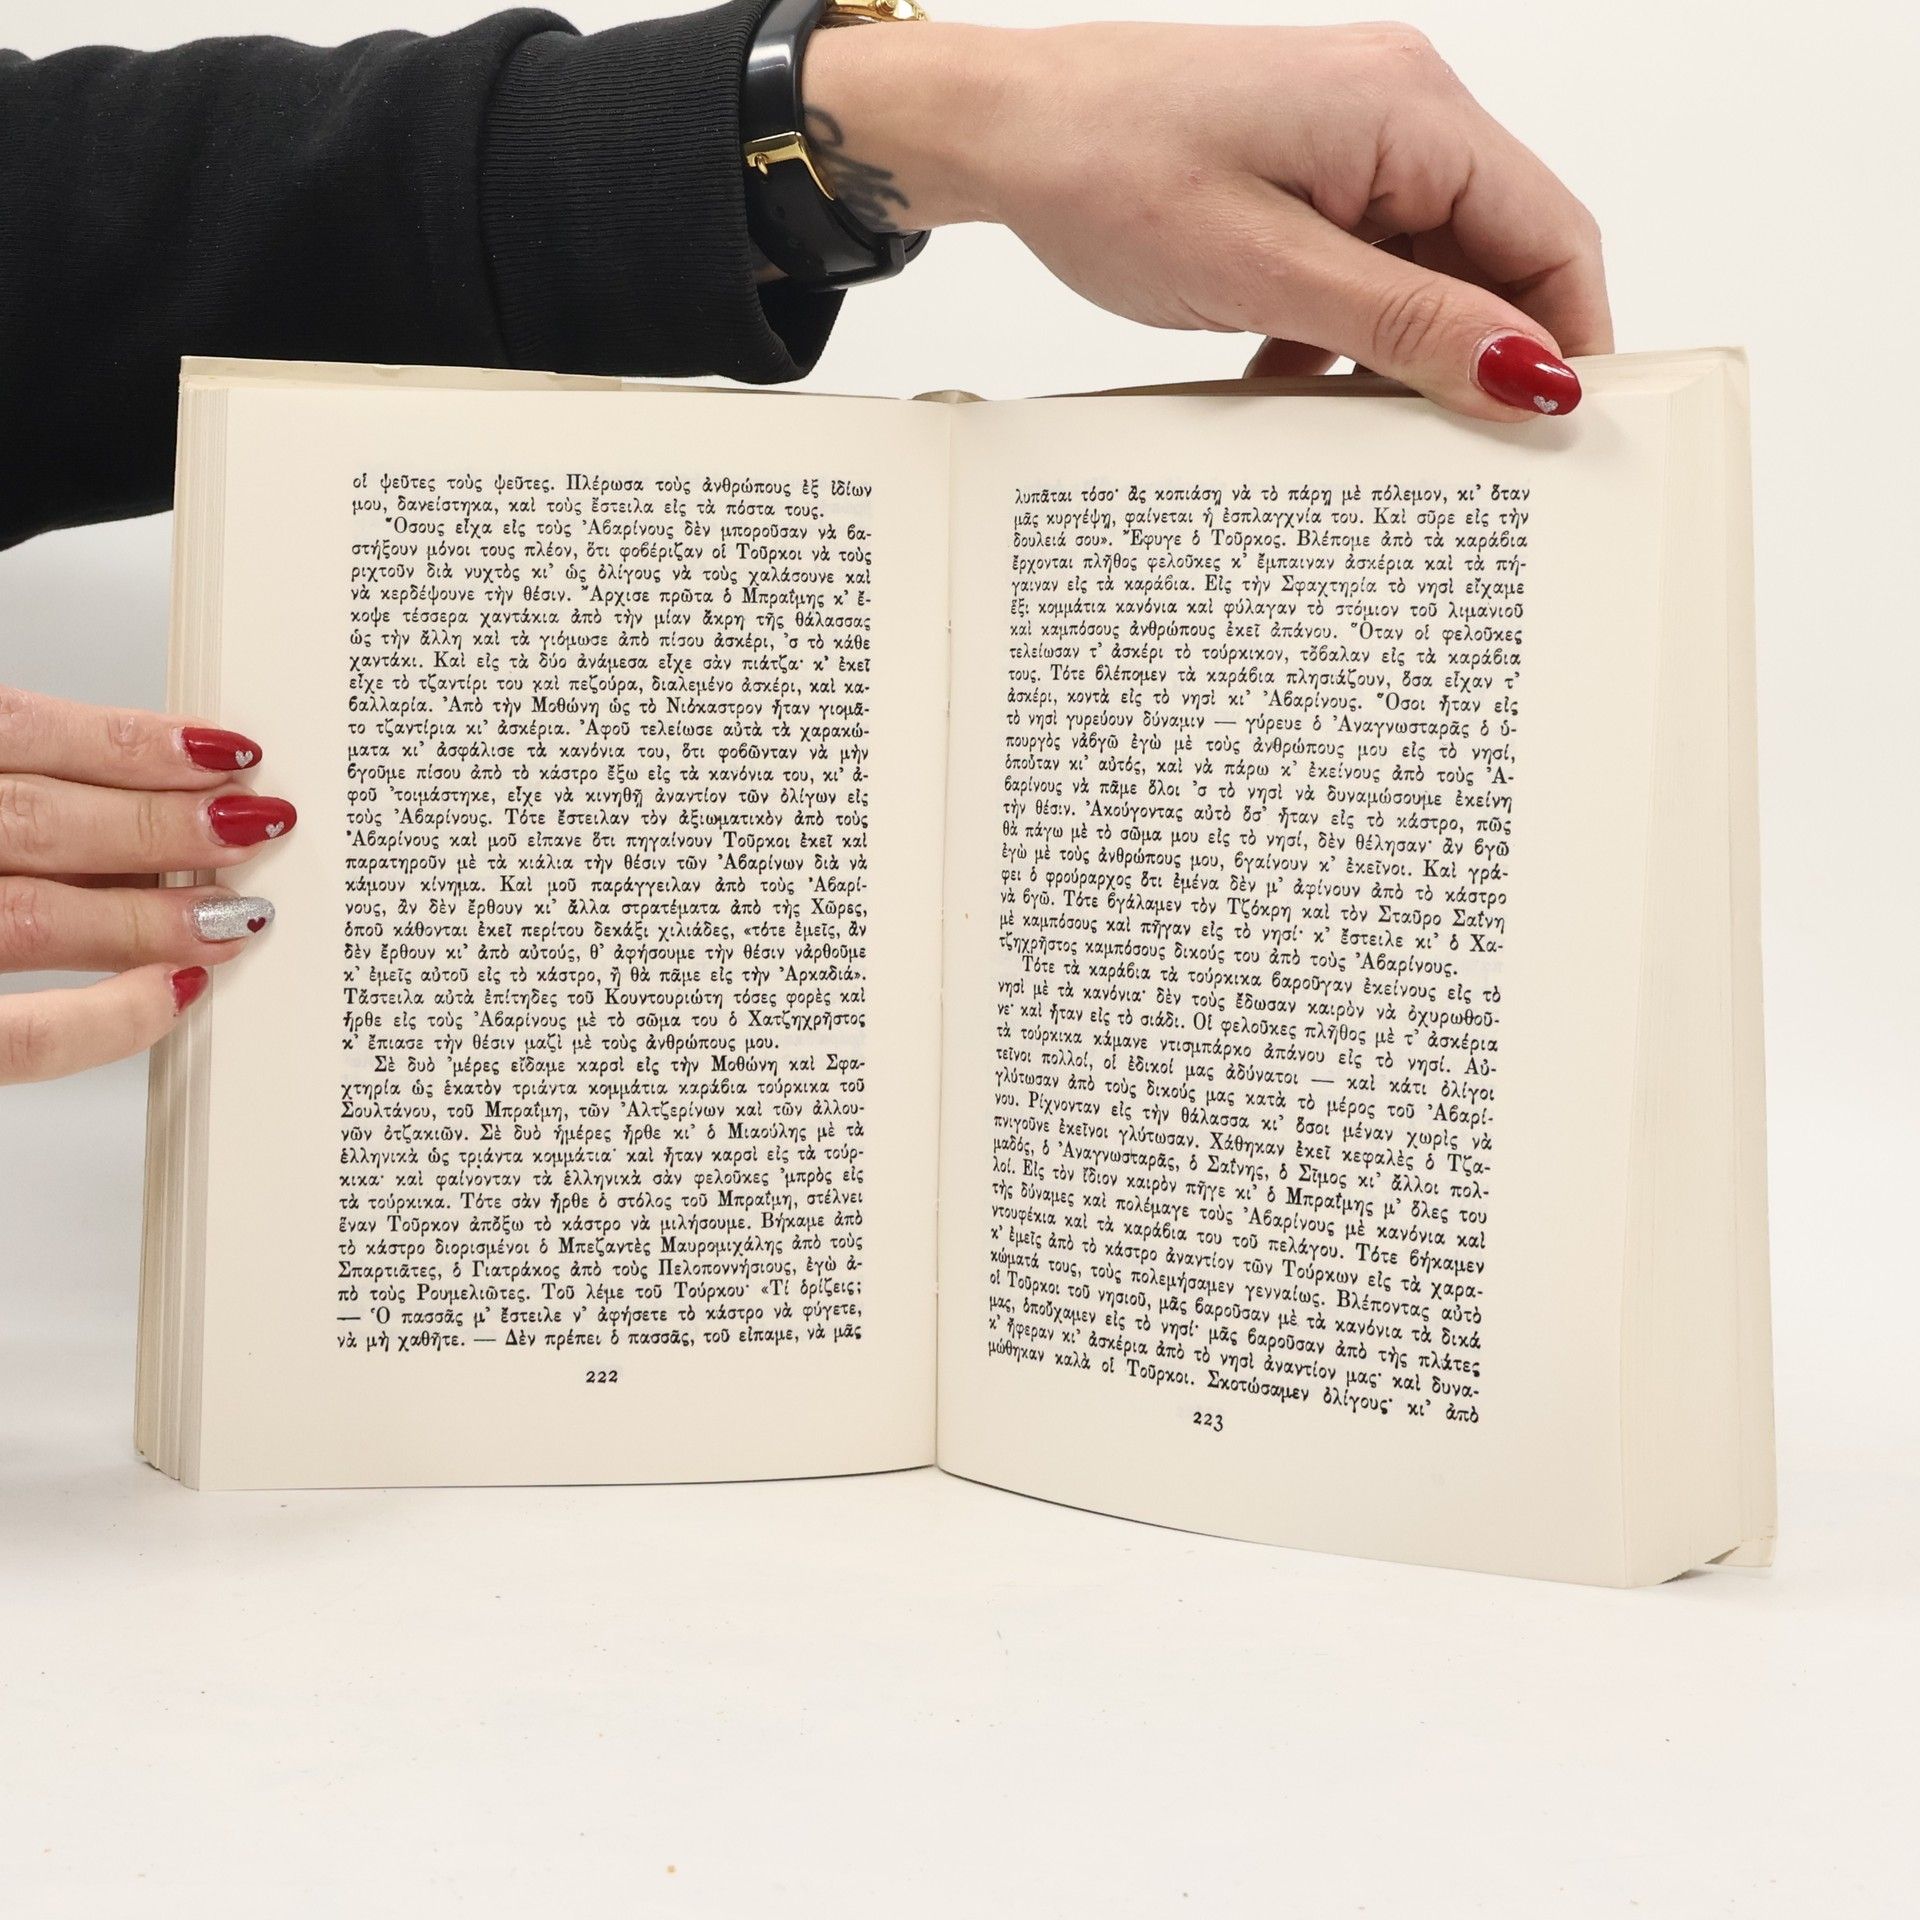 οἱ ψεῦτες τοὺς ψεῦτες. Πλέρωσα τοὺς ἀνθρώπους ἐξ ἰδίων
μου, δανείστηκα, καὶ τοὺς ἔστειλα εἰς τὰ πόστα τους.
Ὅσους εἶχα εἰς τοὺς Ἀβαρίνους δὲν μποροῦσαν νὰ βα-
στήξουν μόνοι τους πλέον, ὅτι φοβέριζαν οἱ Τοῦρκοι νὰ τοὺς
ριχτοῦν διὰ νυχτὸς κι᾿ ὡς ὀλίγους νὰ τοὺς χαλάσουνε καὶ
νὰ κερδέψουνε τὴν θέσιν. Ἄρχισε πρῶτα ὁ Μπραΐμης κ᾿ ἔ-
κοψε τέσσερα χαντάκια ἀπὸ τὴν μίαν ἄκρη τῆς θάλασσας
ὡς τὴν ἄλλη καὶ τὰ γιόμωσε ἀπὸ πίσου ἀσκέρι, ᾿ς τὸ κάθε
χαντάκι. Καὶ εἰς τὰ δύο ἀνάμεσα εἶχε σὰν πιάτζα· κ᾿ ἐκεῖ
εἶχε τὸ τζαντίρι του καὶ πεζούρα, διαλεμένο ἀσκέρι, καὶ κα-
βαλλαρία. Ἀπὸ τὴν Μοθώνη ὡς τὸ Νιόκαστρον ἦταν γιομᾶ-
το τζαντίρια κι᾿ ἀσκέρια. Ἀφοῦ τελείωσε αὐτὰ τὰ χαρακώ-
ματα κι᾿ ἀσφάλισε τὰ κανόνια του, ὅτι φοβῶνταν νὰ μὴν
βγοῦμε πίσου ἀπὸ τὸ κάστρο ἔξω εἰς τὰ κανόνια του, κι᾿ ἀ-
φοῦ ᾿τοιμάστηκε, εἶχε νὰ κινηθῇ ἀναντίον τῶν ὀλίγων εἰς
τοὺς Ἀβαρίνους. Τότε ἔστειλαν τὸν ἀξιωματικὸν ἀπὸ τοὺς
Ἀβαρίνους καὶ μοῦ εἴπανε ὅτι πηγαίνουν Τοῦρκοι ἐκεῖ καὶ
παρατηροῦν μὲ τὰ κιάλια τὴν θέσιν τῶν Ἀβαρίνων διὰ νὰ
κάμουν κίνημα. Καὶ μοῦ παράγγειλαν ἀπὸ τοὺς Ἀβαρί-
νους, ἂν δὲν ἔρθουν κι᾿ ἄλλα στρατέματα ἀπὸ τῆς Χῶρες,
ὁποῦ κάθονται ἐκεῖ περίτου δεκάξι χιλιάδες, «τότε ἐμεῖς, ἂν
δὲν ἔρθουν κι᾿ ἀπὸ αὐτούς, θ᾿ ἀφήσουμε τὴν θέσιν νἀρθοῦμε
κ᾿ ἐμεῖς αὐτοῦ εἰς τὸ κάστρο, ἢ θὰ πᾶμε εἰς τὴν Ἀρκαδιά».
Τἄστειλα αὐτὰ ἐπίτηδες τοῦ Κουντουριώτη τόσες φορὲς καὶ
ἦρθε εἰς τοὺς Ἀβαρίνους μὲ τὸ σῶμα του ὁ Χατζηχρῆστος
κ᾿ ἔπιασε τὴν θέσιν μαζὶ μὲ τοὺς ἀνθρώπους μου.
Σὲ δυὸ ᾿μέρες εἴδαμε καρσὶ εἰς τὴν Μοθώνη καὶ Σφα-
χτηρία ὡς ἑκατὸν τριάντα κομμάτια καράβια τούρκικα τοῦ
Σουλτάνου, τοῦ Μπραΐμη, τῶν Ἀλτζερίνων καὶ τῶν ἀλλου-
νῶν ὀτζακιῶν. Σὲ δυὸ ἡμέρες ἦρθε κι᾿ ὁ Μιαούλης μὲ τὰ
ἑλληνικὰ ὡς τριάντα κομμάτια· καὶ ἦταν καρσὶ εἰς τὰ τούρ-
κικα· καὶ φαίνονταν τὰ ἑλληνικὰ σὰν φελοῦκες ᾿μπρὸς εἰς
τὰ τούρκικα. Τότε σὰν ἦρθε ὁ στόλος τοῦ Μπραΐμη, στέλνει
ἕναν Τοῦρκον ἀπόξω τὸ κάστρο νὰ μιλήσουμε. Βήκαμε ἀπὸ
τὸ κάστρο διορισμένοι ὁ Μπεζαντὲς Μαυρομιχάλης ἀπὸ τοὺς
Σπαρτιᾶτες, ὁ Γιατράκος ἀπὸ τοὺς Πελοποννήσιους, ἐγὼ ἀ-
πὸ τοὺς Ρουμελιῶτες. Τοῦ λέμε τοῦ Τούρκου· «Τί ὁρίζεις;
— Ὁ πασσᾶς μ᾿ ἔστειλε ν᾿ ἀφήσετε τὸ κάστρο νὰ φύγετε,
νὰ μὴ χαθῆτε. — Δὲν πρέπει ὁ πασσᾶς, τοῦ εἴπαμε, νὰ μᾶς
222
λυπᾶται τόσο· ἂς κοπιάσῃ νὰ τὸ πάρῃ μὲ πόλεμον, κι᾿ ὅταν
μᾶς κυργέψῃ, φαίνεται ἡ ἐσπλαγχνία του. Καὶ σῦρε εἰς τὴν
δουλειά σου». Ἔφυγε ὁ Τοῦρκος. Βλέπομε ἀπὸ τὰ καράβια
ἔρχονται πλῆθος φελοῦκες κ᾿ ἔμπαιναν ἀσκέρια καὶ τὰ πή-
γαιναν εἰς τὰ καράβια. Εἰς τὴν Σφαχτηρία τὸ νησὶ εἴχαμε
ἕξι κομμάτια κανόνια καὶ φύλαγαν τὸ στόμιον τοῦ λιμανιοῦ
καὶ καμπόσους ἀνθρώπους ἐκεῖ ἀπάνου. Ὅταν οἱ φελοῦκες
τελείωσαν τ᾿ ἀσκέρι τὸ τούρκικον, τὄβαλαν εἰς τὰ καράβια
τους. Τότε βλέπομεν τὰ καράβια πλησιάζουν, ὅσα εἶχαν τ᾿
ἀσκέρι, κοντὰ εἰς τὸ νησὶ κι᾿ Ἀβαρίνους. Ὅσοι ἦταν εἰς
τὸ νησὶ γυρεύουν δύναμιν — γύρευε ὁ Ἀναγνωσταρᾶς ὁ ὑ-
πουργὸς νἀβγῶ ἐγὼ μὲ τοὺς ἀνθρώπους μου εἰς τὸ νησί,
ὁποῦταν κι᾿ αὐτός, καὶ νὰ πάρω κ᾿ ἐκείνους ἀπὸ τοὺς Ἀ-
βαρίνους νὰ πᾶμε ὅλοι ᾿ς τὸ νησὶ νὰ δυναμώσουμε ἐκείνη
τὴν θέσιν. Ἀκούγοντας αὐτὸ ὅσ᾿ ἦταν εἰς τὸ κάστρο, πῶς
θὰ πάγω μὲ τὸ σῶμα μου εἰς τὸ νησί, δὲν θέλησαν· ἂν βγῶ
ἐγὼ μὲ τοὺς ἀνθρώπους μου, βγαίνουν κ᾿ ἐκεῖνοι. Καὶ γρά-
φει ὁ φρούραρχος ὅτι ἐμένα δὲν μ᾿ ἀφίνουν ἀπὸ τὸ κάστρο
νὰ βγῶ. Τότε βγάλαμεν τὸν Τζόκρη καὶ τὸν Σταῦρο Σαΐνη
μὲ καμπόσους καὶ πῆγαν εἰς τὸ νησί· κ᾿ ἔστειλε κι᾿ ὁ Χα-
τζηχρῆστος καμπόσους δικούς του ἀπὸ τοὺς Ἀβαρίνους.
Τότε τὰ καράβια τὰ τούρκικα βαροῦγαν ἐκείνους εἰς τὸ
νησὶ μὲ τὰ κανόνια· δὲν τοὺς ἔδωσαν καιρὸν νὰ ὀχυρωθοῦ-
νε· καὶ ἦταν εἰς τὸ σιάδι. Οἱ φελοῦκες πλῆθος μὲ τ᾿ ἀσκέρια
τὰ τούρκικα κάμανε ντισμπάρκο ἀπάνου εἰς τὸ νησί. Αὐ-
τεῖνοι πολλοί, οἱ ἐδικοί μας ἀδύνατοι — καὶ κάτι ὀλίγοι
γλύτωσαν ἀπὸ τοὺς δικούς μας κατὰ τὸ μέρος τοῦ Ἀβαρί-
νου. Ρίχνονταν εἰς τὴν θάλασσα κι᾿ ὅσοι μέναν χωρὶς νὰ
πνιγοῦνε ἐκεῖνοι γλύτωσαν. Χάθηκαν ἐκεῖ κεφαλὲς ὁ Τζα-
μαδός, ὁ Ἀναγνωσταρᾶς, ὁ Σαΐνης, ὁ Σῖμος κι᾿ ἄλλοι πολ-
λοί. Εἰς τὸν ἴδιον καιρὸν πῆγε κι᾿ ὁ Μπραΐμης μ᾿ ὅλες του
τῆς δύναμες καὶ πολέμαγε τοὺς Ἀβαρίνους μὲ κανόνια καὶ
ντουφέκια καὶ τὰ καράβια του τοῦ πελάγου. Τότε βήκαμεν
κ᾿ ἐμεῖς ἀπὸ τὸ κάστρο ἀναντίον τῶν Τούρκων εἰς τὰ χαρα-
κώματά τους, τοὺς πολεμήσαμεν γενναίως. Βλέποντας αὐτὸ
οἱ Τοῦρκοι τοῦ νησιοῦ, μᾶς βαροῦσαν μὲ τὰ κανόνια τὰ δικά
μας, ὁποὔχαμεν εἰς τὸ νησί· μᾶς βαροῦσαν ἀπὸ τῆς πλάτες
κ᾿ ἤφεραν κι᾿ ἀσκέρια ἀπὸ τὸ νησὶ ἀναντίον μας· καὶ δυνα-
μώθηκαν καλὰ οἱ Τοῦρκοι. Σκοτώσαμεν ὀλίγους· κι᾿ ἀπὸ
223